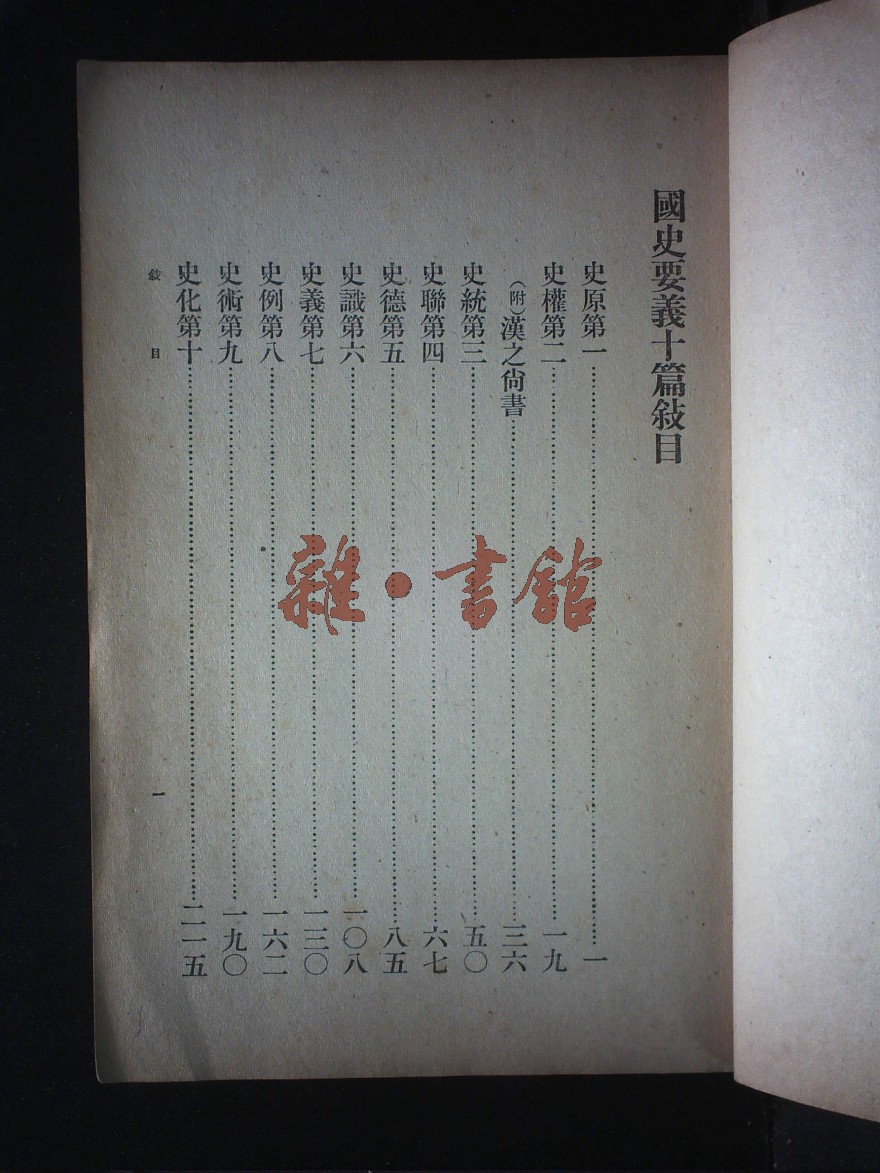 國史要義十篇敍目
史原第一……一
史權第二……一九
(附)漢之尙書……三六
史統第三……五〇
史聯第四……六七
史德第五……八五
史識第六……一〇八
史義第七……一三〇
史例第八……一六二
史術第九……一九〇
史化第十……二一五
敍目 一
雜·書館